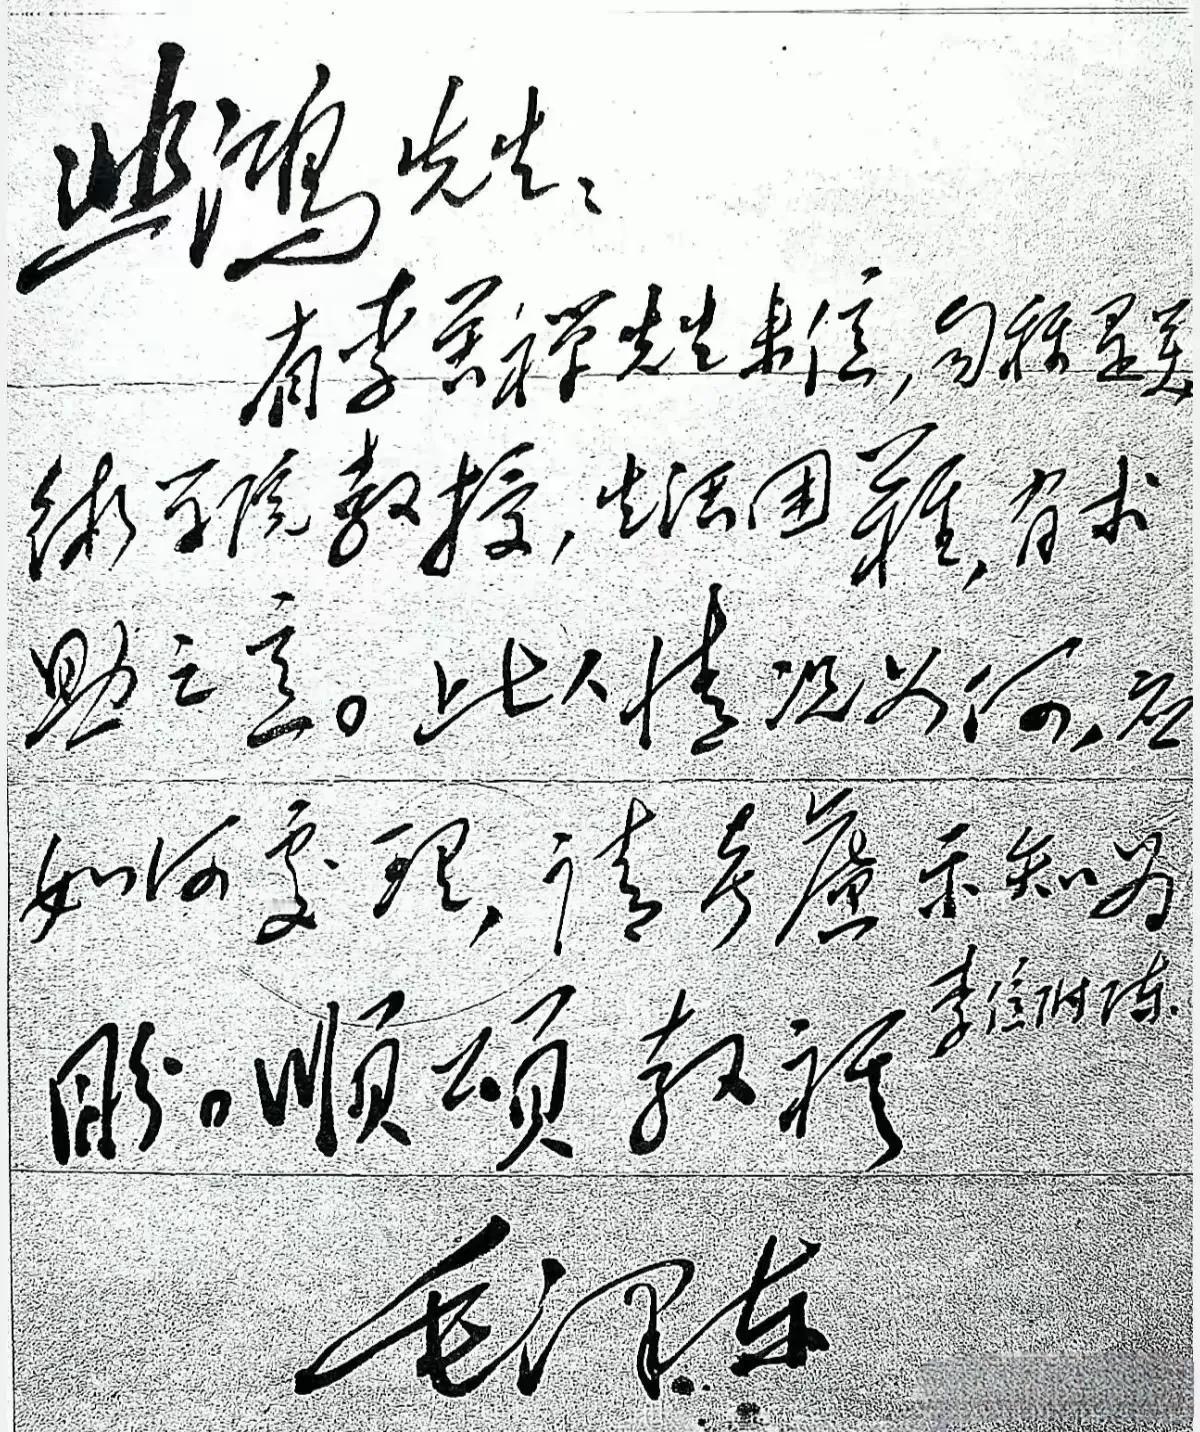 悲鸿先生：
有李苦禅先生来信，自称是美
術学院教授，生活困難，有求
助之意。此人情况如何，应
如何處理，请考慮示知为
盼。順頌教祺 李信附陈.
毛泽东